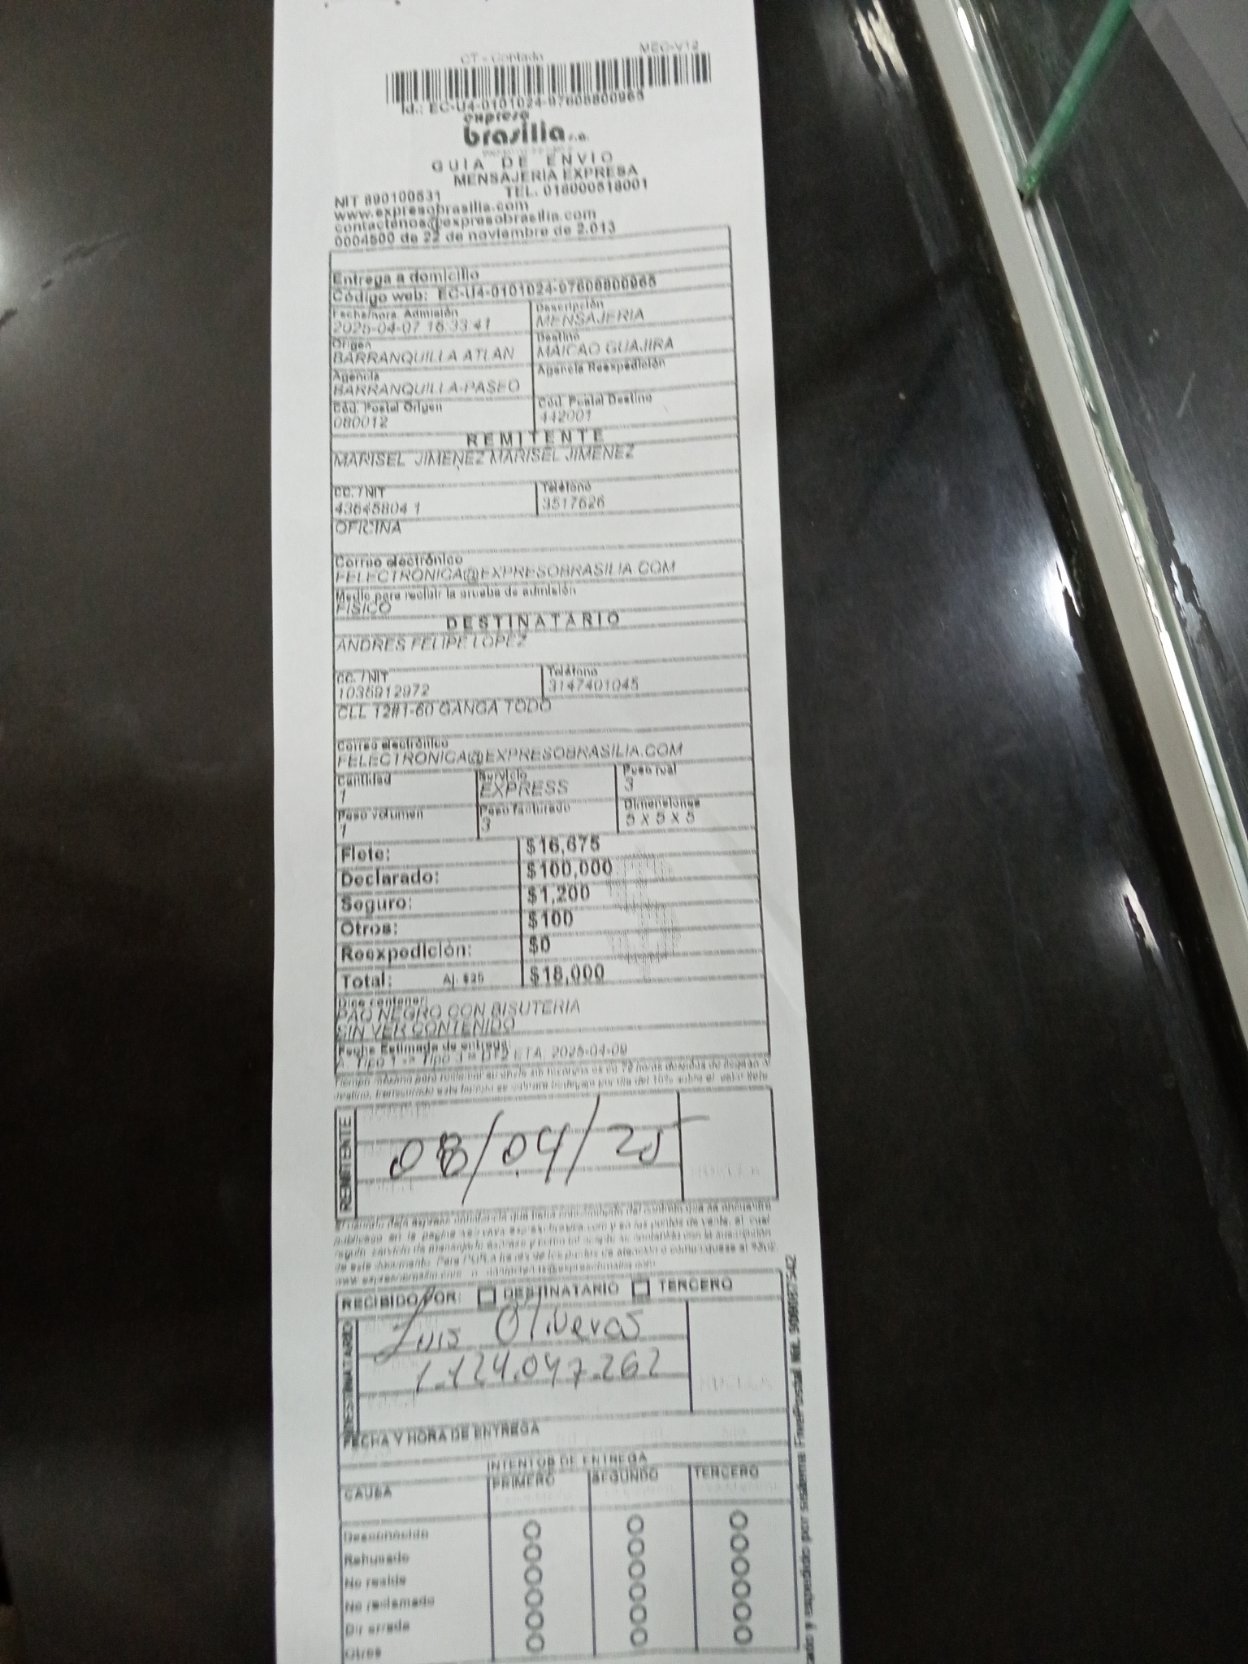 CT - Contado MEC-V12
Id.: EC-U4-0101024-97608800965
expreso
brasilia s.a.
GUIA DE ENVIO
MENSAJERIA EXPRESA
NIT 890100531 TEL. 018000518001
www.expresobrasilia.com
contactenos@expresobrasilia.com
0004500 de 22 de noviembre de 2.013
Entrega a domicilio
Código web: EC-U4-0101024-97608800965
Fecha/hora. Admisión Descripción
2025-04-07 16:33:41 MENSAJERIA
Origen Destino
BARRANQUILLA ATLAN MAICAO GUAJIRA
Agencia Agencia Reexpedición
BARRANQUILLA-PASEO
Cód. Postal Origen Cód. Postal Destino
080012 442001
REMITENTE
MARISEL JIMENEZ MARISEL JIMENEZ
CC. / NIT Teléfono
43645804 1 3517626
OFICINA
Correo electrónico
FELECTRONICA@EXPRESOBRASILIA.COM
Medio para recibir la prueba de admisión
FISICO
DESTINATARIO
ANDRES FELIPE LOPEZ
CC. / NIT Teléfono
1035912972 3147401045
CLL 12#1-60 GANGA TODO
Correo electrónico
FELECTRONICA@EXPRESOBRASILIA.COM
Cantidad Servicio Peso real
1 EXPRESS 3
Peso volumen Peso facturado Dimensiones
1 3 5 X 5 X 5
Flete: $16,675
Declarado: $100,000
Seguro: $1,200
Otros: $100
Reexpedición: $0
Total: Aj. $25 $18,000
Dice contener:
PAQ NEGRO CON BISUTERIA
SIN VER CONTENIDO
Fecha Estimada de entrega:
Tipo 1 -> Tipo 3 = DT2 ETA: 2025-04-09
REMITENTE
08/04/25
RECIBIDO POR: DESTINATARIO TERCERO
DESTINATARIO
Luis Oliveros
1.124.047.262
FECHA Y HORA DE ENTREGA
INTENTOS DE ENTREGA
CAUSA PRIMERO SEGUNDO TERCERO
Desconocido
Rehusado
No reside
No reclamado
Dir errada
Otros